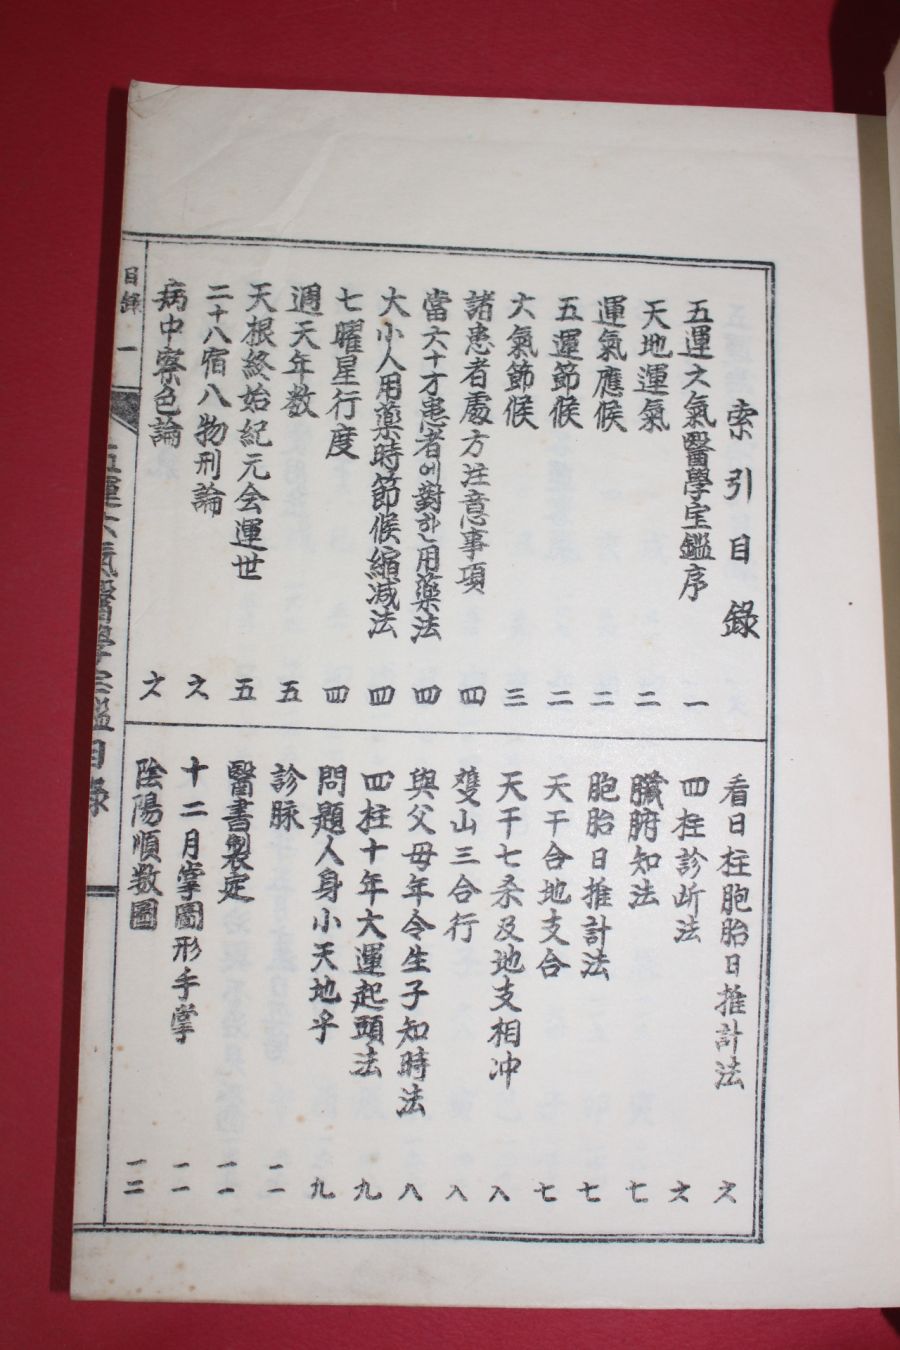 索引目錄
五運六氣醫學宝鑑序 一
天地運氣 二
運氣應候 二
五運節候 二
六氣節候 三
諸患者處方注意事項 四
當六十才患者에對한用藥法 四
大小人用藥時節候縮减法 四
七曜星行度 四
週天年数 五
天根終始紀元会運世 五
二十八宿八物刑論 六
病中察色論 六
看日柱胞胎日推計法 六
四柱診斷法 六
臟腑知法 七
胞胎日推計法 七
天干合地支合 七
天干七杀及地支相冲 八
雙山三合行 八
與父母年令生子知時法 八
四柱十年大運起頭法 九
問題人身小天地乎 九
診脉 一一
醫書製定 一一
十二月掌圖形手掌 一一
陰陽順数圖 一二
目錄 一
五運六氣醫學宝鑑目錄